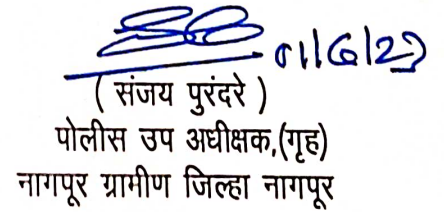 01/6/23
( संजय पुरंदरे )
पोलीस उप अधीक्षक,(गृह)
नागपूर ग्रामीण जिल्हा नागपूर